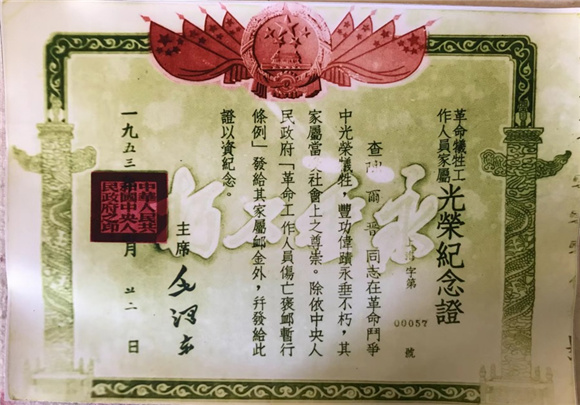 革命犧牲工
作人員家屬
光榮紀念證
字第00057號
查 爾 同志在革命鬥爭
中光榮犧牲，豐功偉蹟永垂不朽，其
家屬當受社會上之尊崇。除依中央人
民政府「革命工作人員傷亡褒卹暫行
條例」發給其家屬卹金外，幷發給此
證以資紀念。
主席 毛澤東
一九五三 月廿二日
中華人民共
和國中央人
民政府之印
永垂不朽